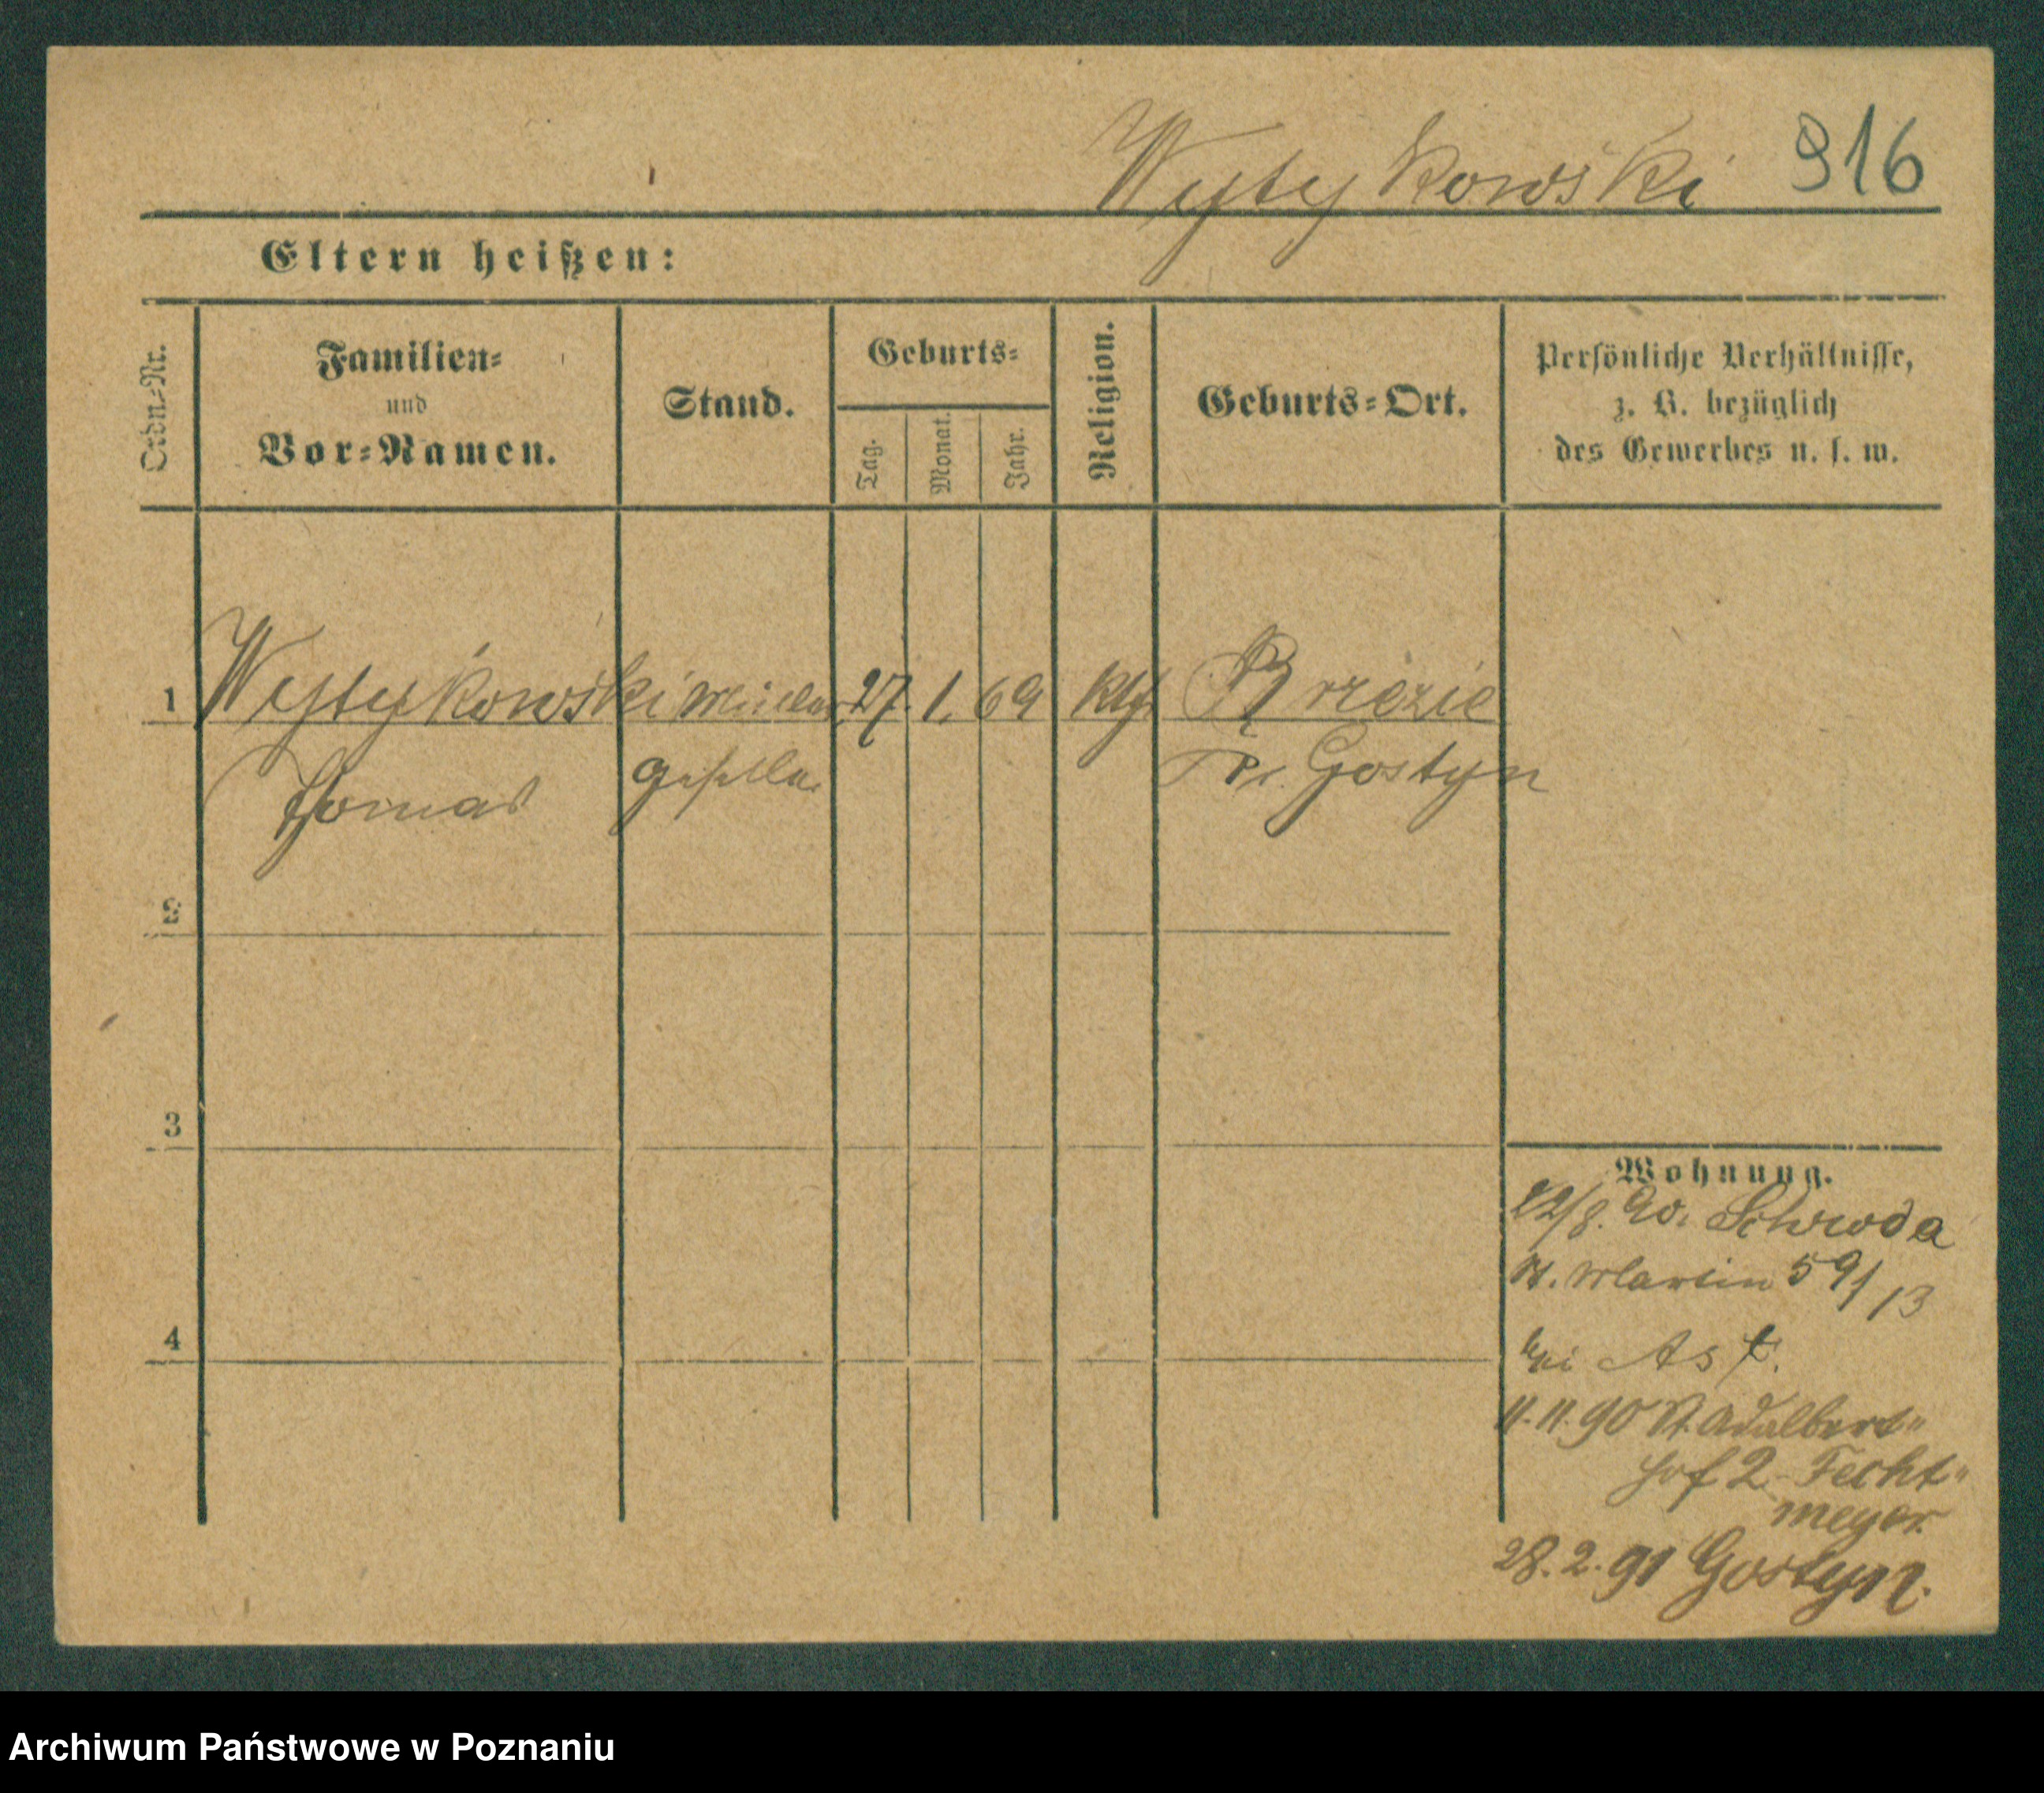 Wytykowski 916
Eltern heißen:
Ordn.-Nr.
Familien-
und
Vor-Namen.
Stand.
Geburts-
Tag.
Monat.
Jahr.
Religion.
Geburts-Ort.
Persönliche Verhältnisse,
z. B. bezüglich
des Gewerbes u. s. w.
1 Wytykowski Müller 27. 1. 69 Kth Brzezie
Thomas geselle Kr. Gostyn
2
3
4
Wohnung.
22/8. 90. Schroda
St. Martin 59/13
bei Ast.
11.11.90 St. Adalbert-
hof 2 Fecht-
meyer.
28.2.91 Gostyn.
Archiwum Państwowe w Poznaniu